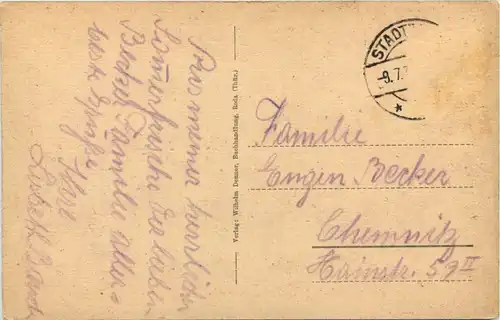 Aus meiner herrlichen
Sommerfrische die lieben
Becker Familie aller-
beste Grüße
Ihre
Lisbeth
Verlag: Wilhelm Demmer, Buchhandlung, Roda (Thür.)
STADT
-9.7.2
Familie
Eugen Becker
Chemnitz
Hainstr. 59 II